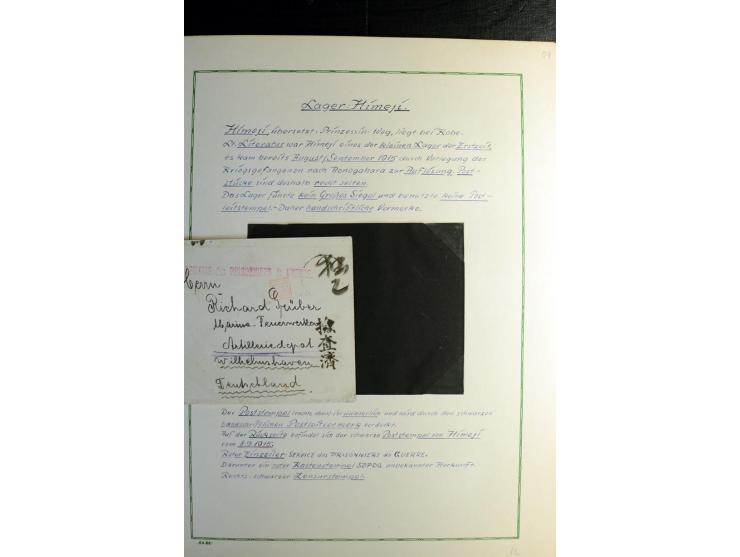 Lager-Himeji.
Himeji, übersetzt: Prinzessin-Weg, liegt bei Kobe.
Lt. Literatur war Himeji eines der kleinen Lager der Erstzeit,
es kam bereits August/September 1915 durch Verlegung der
Kriegsgefangenen nach Aonogahara zur Auflösung. Post-
stücke sind deshalb recht selten.
Das Lager führte kein Großes Siegel und benutzte keine Post-
leitstempel. - Daher handschriftliche Vermerke.
SERVICE des PRISONNIERS de GUERRE
Herrn
Richard Grüber
Marine-Feuerwerker
Artilleriedepot
Wilhelmshaven
Deutschland.
検査濟
Der Poststempel
und wird durch den schwarzen
handschriftlichen Postleitvermerk verdeckt.
Auf der Rückseite befindet sich der schwarze Poststempel von Himeji
vom 8.9.1915.
Roter Einzeiler: SERVICE des PRISONNIERS de GUERRE.
Darunter ein roter Kastenstempel SDPDG unbekannter Herkunft.
Rechts: schwarzer Zensurstempel.